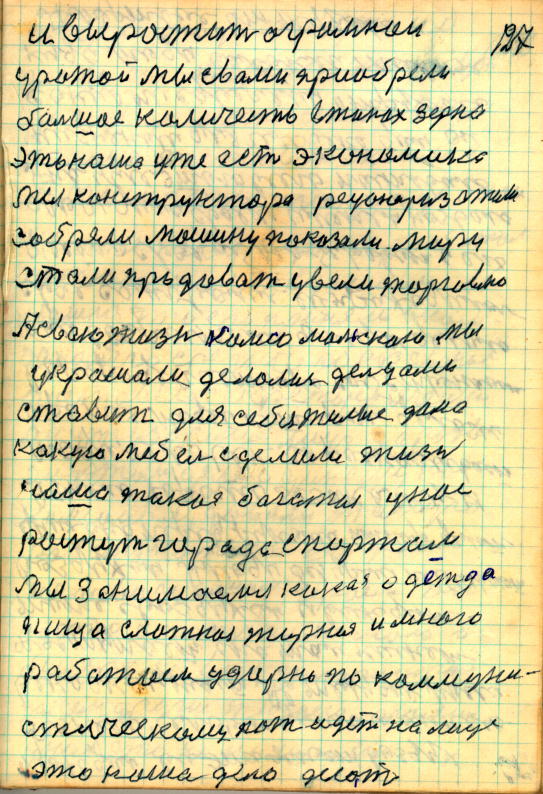 и выростит огромной 127
урожой мы свами приобрели
большое количесть втонах зерно
этьнаша уже ест экономика
мы конструктора
собрали мошину показали миру
стали прьдоват увели торговлю
Асваю жизн комсомольскаю мы
украшали делами
ставит для себя жилые дама
какую мебел сделили жизн
наша такая богатая унас
ростут города спортам
мы занимаемся какая одежда
пища сложная жирная и много
работаем ударнь пь коммуни-
стическому вот идет на лице
это наша дело делат